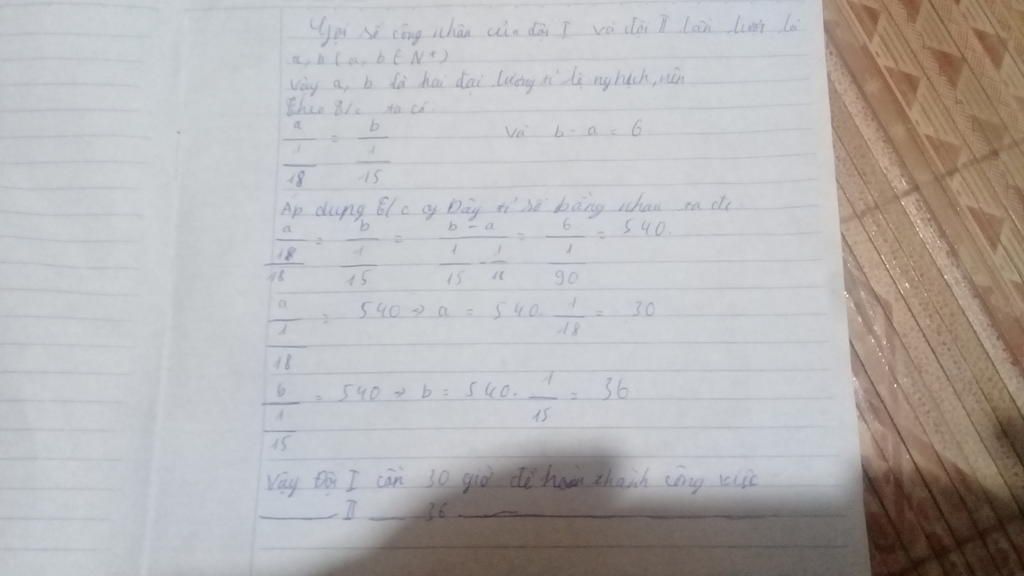 Gọi số công nhân của đội I và đội II lần lượt là
a, b (a, b ∈ N*)
Vậy a, b là hai đại lượng tỉ lệ nghịch, nên
theo t/c ta có
a/(1/18) = b/(1/15) và b - a = 6
Áp dụng t/c Dãy tỉ số bằng nhau ta đc
a/(18/18) = b/(1/15) = (b - a)/(1/15 - 1/18) = 6/(1/90) = 540.
a/(1/18) = 540 → a = 540. 1/18 = 30
b/(1/15) = 540 → b = 540. 1/15 = 36
Vậy Đội I cần 30 giờ để hoàn thành công việc
II 36